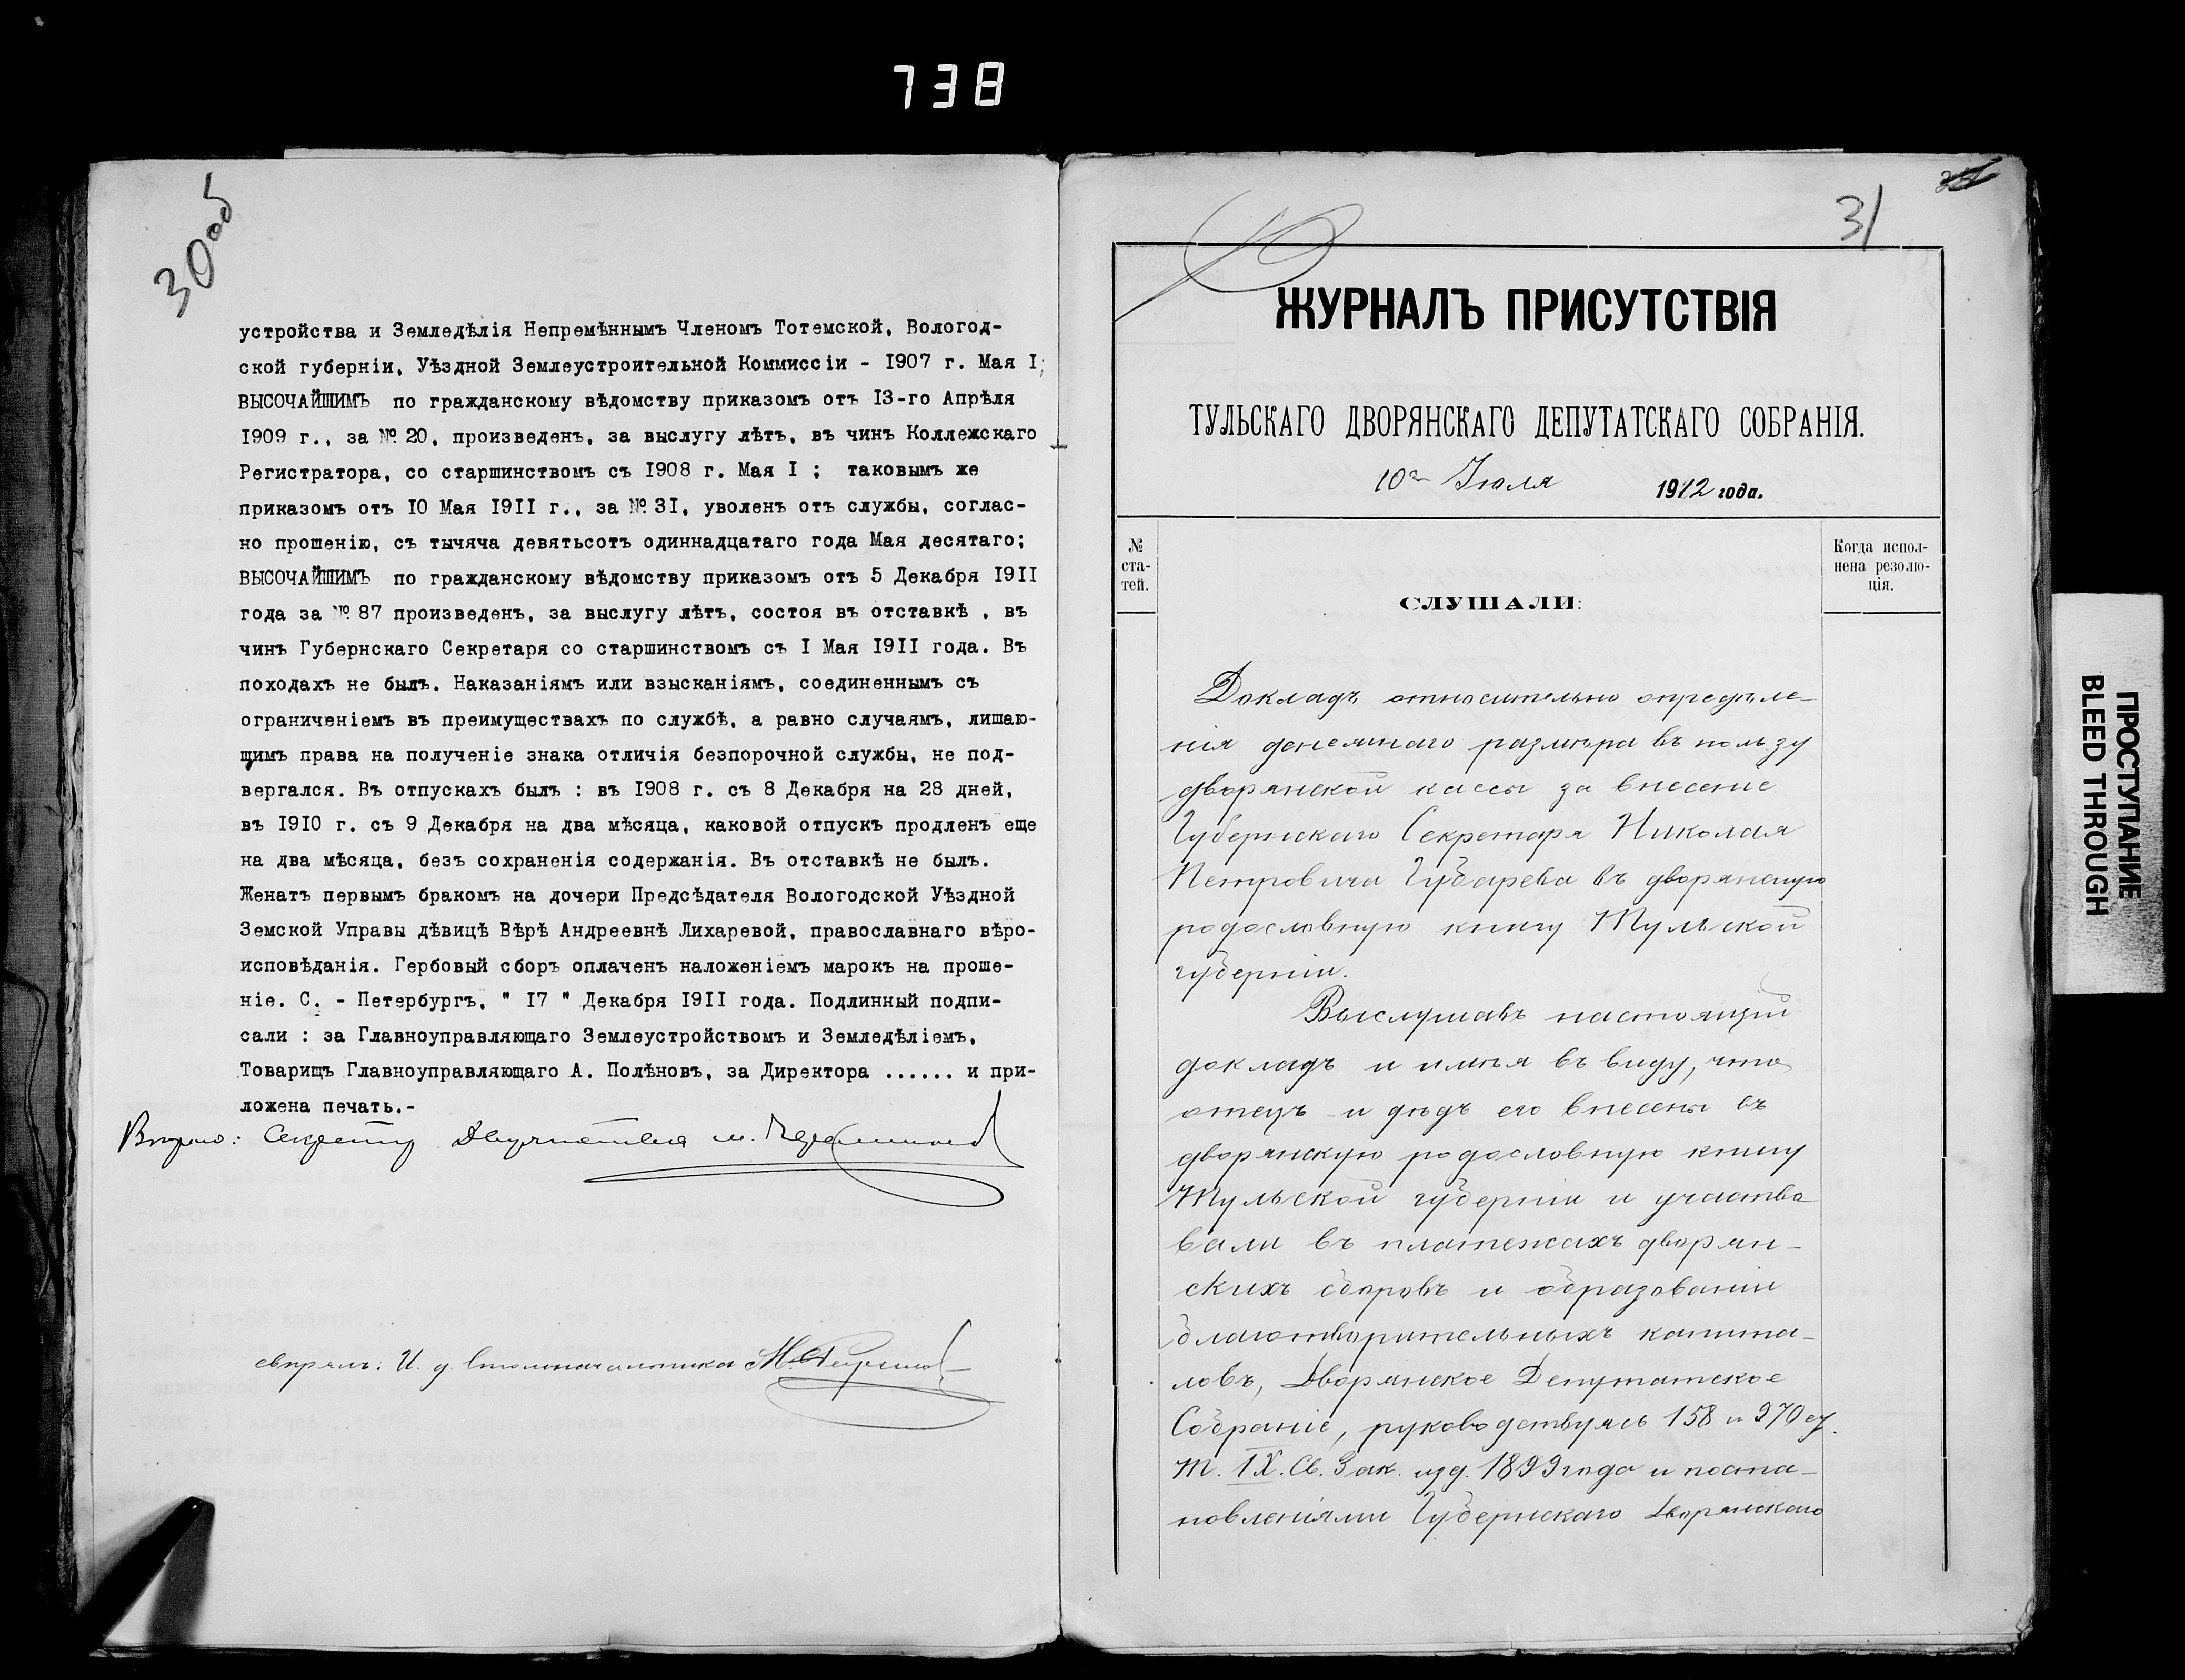 738
30 об
устройства и Земледѣлія Непремѣннымъ Членомъ Тотемской, Вологод-
ской губерніи, Уѣздной Землеустроительной Коммиссіи - 1907 г. Мая I;
ВЫСОЧАЙШИМЪ по гражданскому вѣдомству приказомъ отъ 13-го Апрѣля
1909 г., за № 20, произведенъ, за выслугу лѣтъ, въ чинъ Коллежскаго
Регистратора, со старшинствомъ съ 1908 г. Мая I ; таковымъ же
приказомъ отъ 10 Мая 1911 г., за № 31, уволенъ отъ службы, соглас-
но прошенію, съ тычяча девятьсотъ одиннадцатаго года Мая десятаго;
ВЫСОЧАЙШИМЪ по гражданскому вѣдомству приказомъ отъ 5 Декабря 1911
года за № 87 произведенъ, за выслугу лѣтъ, состоя въ отставкѣ , въ
чинъ Губернскаго Секретаря со старшинствомъ съ I Мая 1911 года. Въ
походахъ не былъ. Наказаніямъ или взысканіямъ, соединеннымъ съ
ограниченіемъ въ преимуществахъ по службѣ, а равно случаямъ, лишаю-
щимъ права на полученіе знака отличія безпорочной службы, не под-
вергался. Въ отпускахъ былъ : въ 1908 г. съ 8 Декабря на 28 дней,
въ 1910 г. съ 9 Декабря на два мѣсяца, каковой отпускъ продленъ еще
на два мѣсяца, безъ сохраненія содержанія. Въ отставкѣ не былъ.
Женатъ первымъ бракомъ на дочери Предсѣдателя Вологодской Уѣздной
Земской Управы дѣвицѣ Вѣрѣ Андреевнѣ Лихаревой, православнаго вѣро-
исповѣданія. Гербовый сборъ оплаченъ наложеніемъ марокъ на проше-
ніе. С. - Петербургъ, " 17 " Декабря 1911 года. Подлинный подпи-
сали : за Главноуправляющаго Землеустройствомъ и Земледѣліемъ,
Товарищъ Главноуправляющаго А. Полѣновъ, за Директора ...... и при-
ложена печать.-
Вѣрно: Секретарь Дворянства
свѣрялъ: И. д. Столоначальника
31
ЖУРНАЛЪ ПРИСУТСТВІЯ
ТУЛЬСКАГО ДВОРЯНСКАГО ДЕПУТАТСКАГО СОБРАНІЯ.
10го Іюля 1912 года.
№
ста-
тей.
СЛУШАЛИ:
Когда испол-
нена резолю-
ція.
Докладъ относительно опредѣле-
нія денежнаго размѣра въ пользу
дворянской кассы за внесеніе
Губернскаго Секретаря Николая
Петровича Губарева въ дворянскую
родословную книгу Тульской
губерніи.
Выслушавъ настоящій
докладъ и имѣя въ виду, что
отецъ и дѣдъ его внесены въ
дворянскую родословную книгу
Тульской губерніи и участво
вали въ платежахъ дворян-
скихъ сборовъ и образованіи
благотворительныхъ капита-
ловъ, Дворянское Депутатское
Собраніе, руководствуясь 158 и 370 ст.
Т. IX. Св. Зак. изд. 1899 года и поста-
новленіями Губернскаго Дворянскаго
ПРОСТУПАНИЕ
BLEED THROUGH